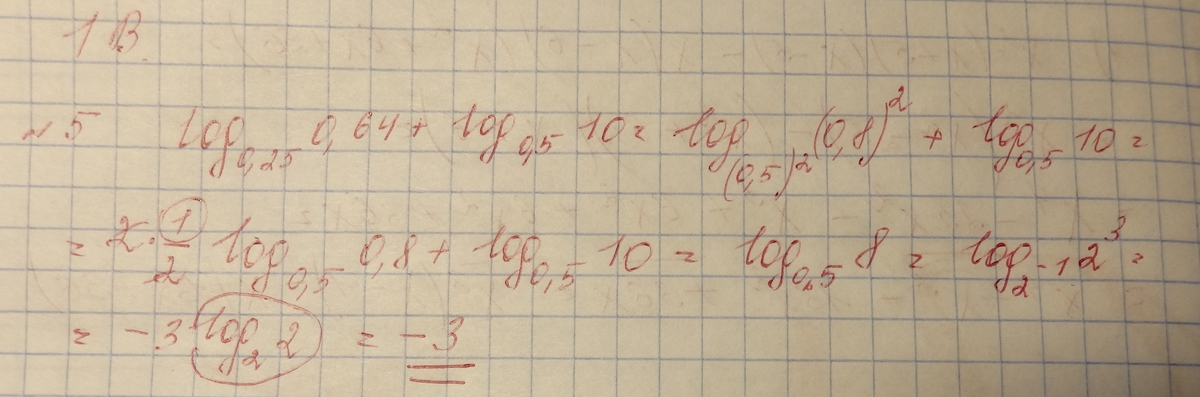 1 В.
№ 5 log_{0,25} 0,64 + log_{0,5} 10 = log_{(0,5)^2} (0,8)^2 + log_{0,5} 10 =
= 2 · 1/2 log_{0,5} 0,8 + log_{0,5} 10 = log_{0,5} 8 = log_{2^{-1}} 2^3 =
= -3 log_2 2 = -3